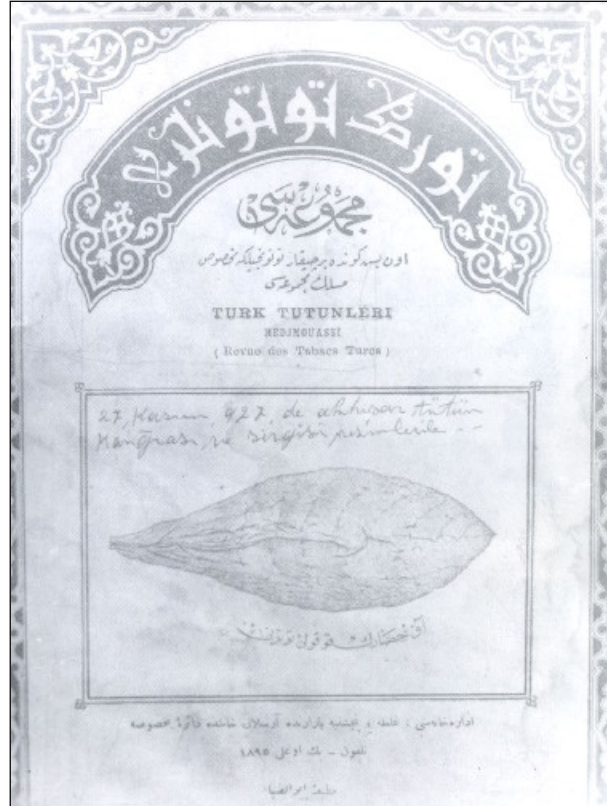 تورك توتونلری
مجموعه‌سی
اون بش كونده بر چیقار توتونجیلكه مخصوص
مسلك مجموعه‌سی
TURK TUTUNLÉRI
MEDJMOUASSI
( Revue des Tabacs Turcs )
27, Kasım 927, de akhisar tütün
Kongrası, ve sergisi resimlerile --
آق حصارك قوقولی توتونی
اداره‌خانه‌سی : غلطه‌ده پنجشنبه بازارنده آرسلان خاننده دائرهٔ مخصوصه
تلفون - بك اوغلی ١٨٩٥
مطبعهٔ ابو الضیا